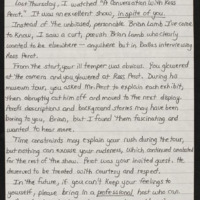 Last Thursday, I watched "A Conversation with Ross
Perot." It was an excellent show, in spite of you.
Instead of the unbiased, personable Brian Lamb I've come
to know, I saw a curt, peevish Brian Lamb who clearly
wanted to be elsewhere — anywhere but in Dallas interviewing
Ross Perot.
From the start, your ill temper was obvious. You glowered
at the camera and you glowered at Ross Perot. During his
museum tour, you asked Mr. Perot to explain each exhibit,
then abruptly cut him off and moved to the next display.
Perot's descriptions and background stories may have been
boring to you, Brian, but I found them fascinating and
wanted to hear more.
Time constraints may explain your rush during the tour,
but nothing can excuse your rudeness, which continued unabated
for the rest of the show. Perot was your invited guest. He
deserved to be treated with courtesy and respect.
In the future, if you can't keep your feelings to
yourself, please bring in a professional host who can